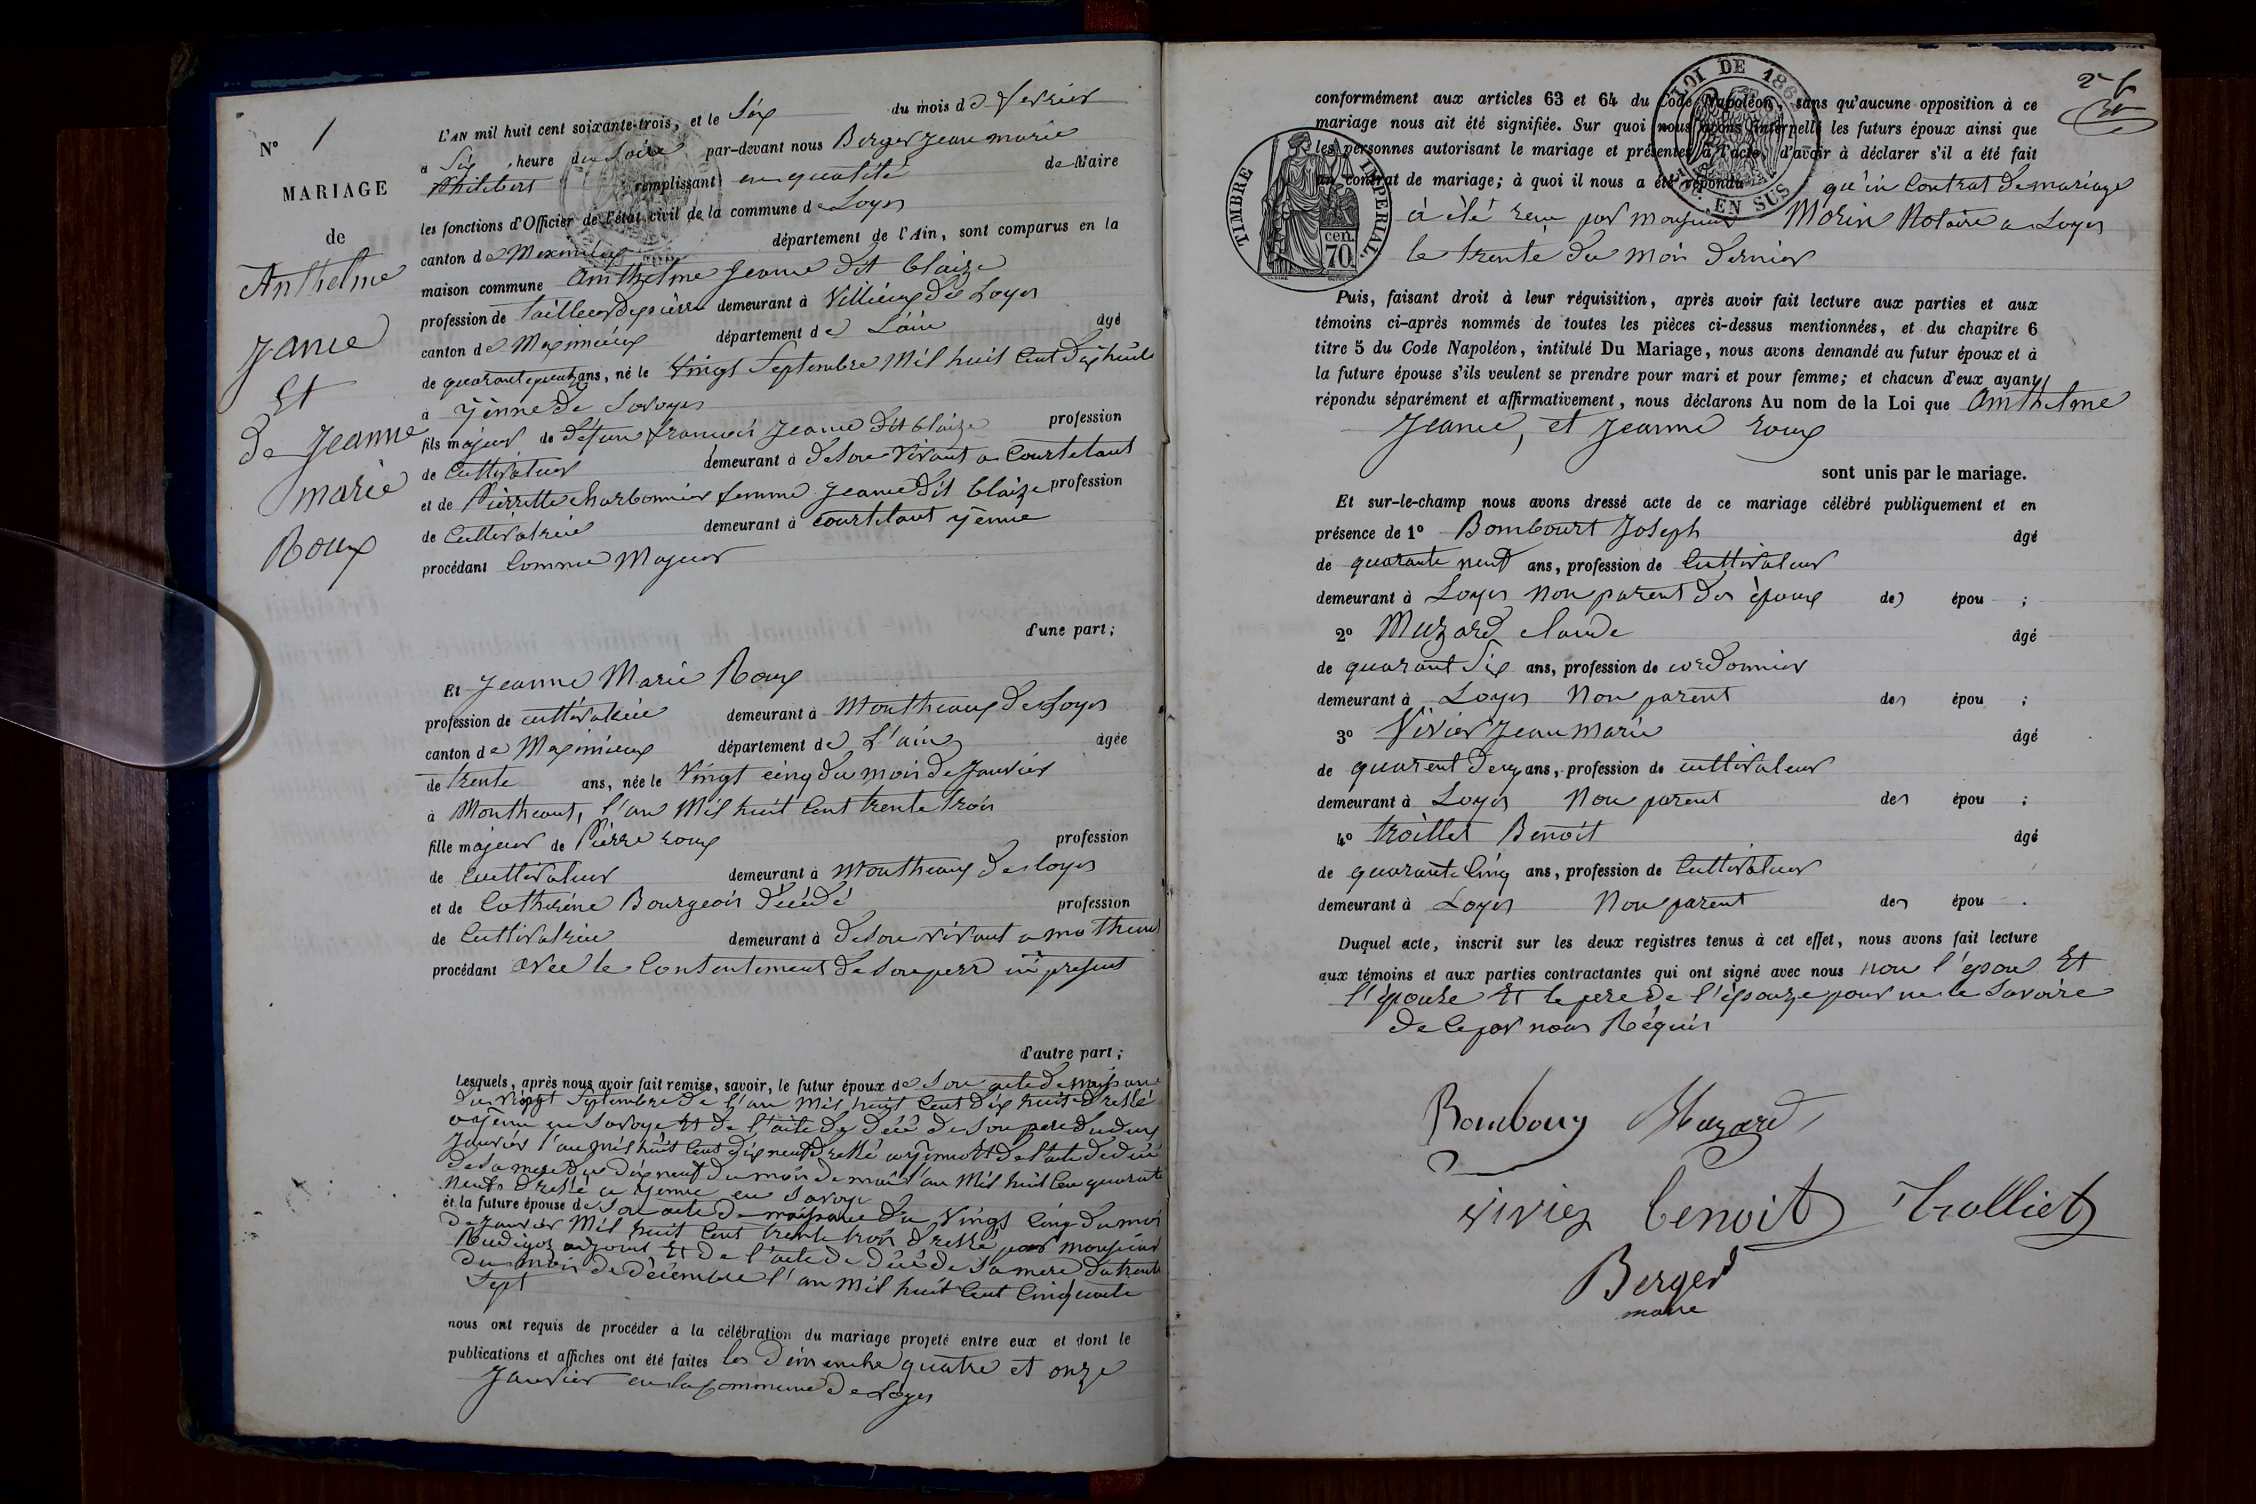 N° 1
MARIAGE
de
Anthelme
Jeanne
Et
de Jeanne
marie
Roux
L'AN mil huit cent soixante-trois, et le Six du mois de fevrier
a Six heure du Soire par-devant nous Berger Jean marie
Philibert remplissant en qualité de Maire
les fonctions d'Officier de l'état civil de la commune de Loyes
canton de Meximieux département de l'Ain, sont comparus en la
maison commune Amthelme Jeanne dit blaize
profession de tailleur de pierre demeurant à Villieux de Loyes
canton de Meximieux département de L'ain âgé
de quarante quatre ans, né le Vingt Septembre Mil huit Cent dix huit
a yenne de Savoyes
fils majeur de défun francois Jeanne dit blaize profession
de Cultivateur demeurant à de son vivant a Courtelant
et de Pierrette charbonnier femme Jeanne dit blaize profession
de Cultivatrice demeurant à courtelant yenne
procédant Comme Majeur
d'une part;
Et Jeanne Marie Roux
profession de cultivatrice demeurant à Montheaux de Loyes
canton de Meximieux département de L'ain âgée
de trente ans, née le Vingt cinq du mois de Janvier
à Montheaut, l'an Mil huit Cent trente trois
fille majeur de Pierre roux profession
de Cultivateur demeurant à Montheaux de loyes
et de Catherine Bourgeois décédé profession
de Cultivatrice demeurant à de son vivant a motheaut
procédant avec le Consentement de son perr ici present
d'autre part;
Lesquels, après nous avoir fait remise, savoir, le futur époux de Son acte de naissance
du Vingt Septembre de l'an Mil huit Cent dix huit dressé
a yenne en Savoye Et de l'acte de décé de Son pere du deux
Janvier l'an Mil huit Cent dix neuf dressé a yenne Et de l'acte de décé
de Sa mere du dix neuf du mois de l'an Mil huit Cen quarante
Neuf dressé a yenne en Savoye
et la future épouse de Son acte de naissance du Vingt Cinq du moi
de Janvier Mil huit Cent trente trois dressé par Monsieur
Rudigoz adjoint Et de l'acte de décé de Sa mere du trente
du mois de décembre l'an Mil huit Cent Cinquante
Sept
nous ont requis de procéder à la célébration du mariage projeté entre eux et dont le
publications et affiches ont été faites les Dimenche quatre et onze
Janvier en la Commune de Loyes
conformément aux articles 63 et 64 du Code Napoléon, sans qu'aucune opposition à ce
mariage nous ait été signifiée. Sur quoi nous avons interpellé les futurs époux ainsi que
les personnes autorisant le mariage et présentes à l'acte, d'avoir à déclarer s'il a été fait
un contrat de mariage; à quoi il nous a été répondu qu'in Contrat de mariage
à été reçu par Monsieur Morin Notaire a Loyes
le trente du Mois dernier
LOI DE 1862
EN SUS
TIMBRE IMPERIAL
cen.
70.
Puis, faisant droit à leur réquisition, après avoir fait lecture aux parties et aux
témoins ci-après nommés de toutes les pièces ci-dessus mentionnées, et du chapitre 6
titre 5 du Code Napoléon, intitulé Du Mariage, nous avons demandé au futur époux et à
la future épouse s'ils veulent se prendre pour mari et pour femme; et chacun d'eux ayant
répondu séparément et affirmativement, nous déclarons Au nom de la Loi que Amthelme
Jeanne, et Jeanne roux
sont unis par le mariage.
Et sur-le-champ nous avons dressé acte de ce mariage célébré publiquement et en
présence de 1° Bombourt Joseph âgé
de quarante neuf ans, profession de Cultivateur
demeurant à Loyes Non parent des époux des épou ;
2° Muzard claude âgé
de quarant Six ans, profession de cordonnier
demeurant à Loyes Non parent des épou ;
3° Vivier Jean Marie âgé
de quarent deux ans, profession de cultivateur
demeurant à Loyes Non parent des épou ;
4° troillet Benoit âgé
de quarante Cinq ans, profession de Cultivateur
demeurant à Loyes Non parent des épou .
Duquel acte, inscrit sur les deux registres tenus à cet effet, nous avons fait lecture
aux témoins et aux parties contractantes qui ont signé avec nous non l'epoux Et
l'épouse Et le pere de l'épouze pour ne le Savoire
de Ce par nous Réquis
Bombourg Muzard
vivier benoit trolliet
Berger
maire